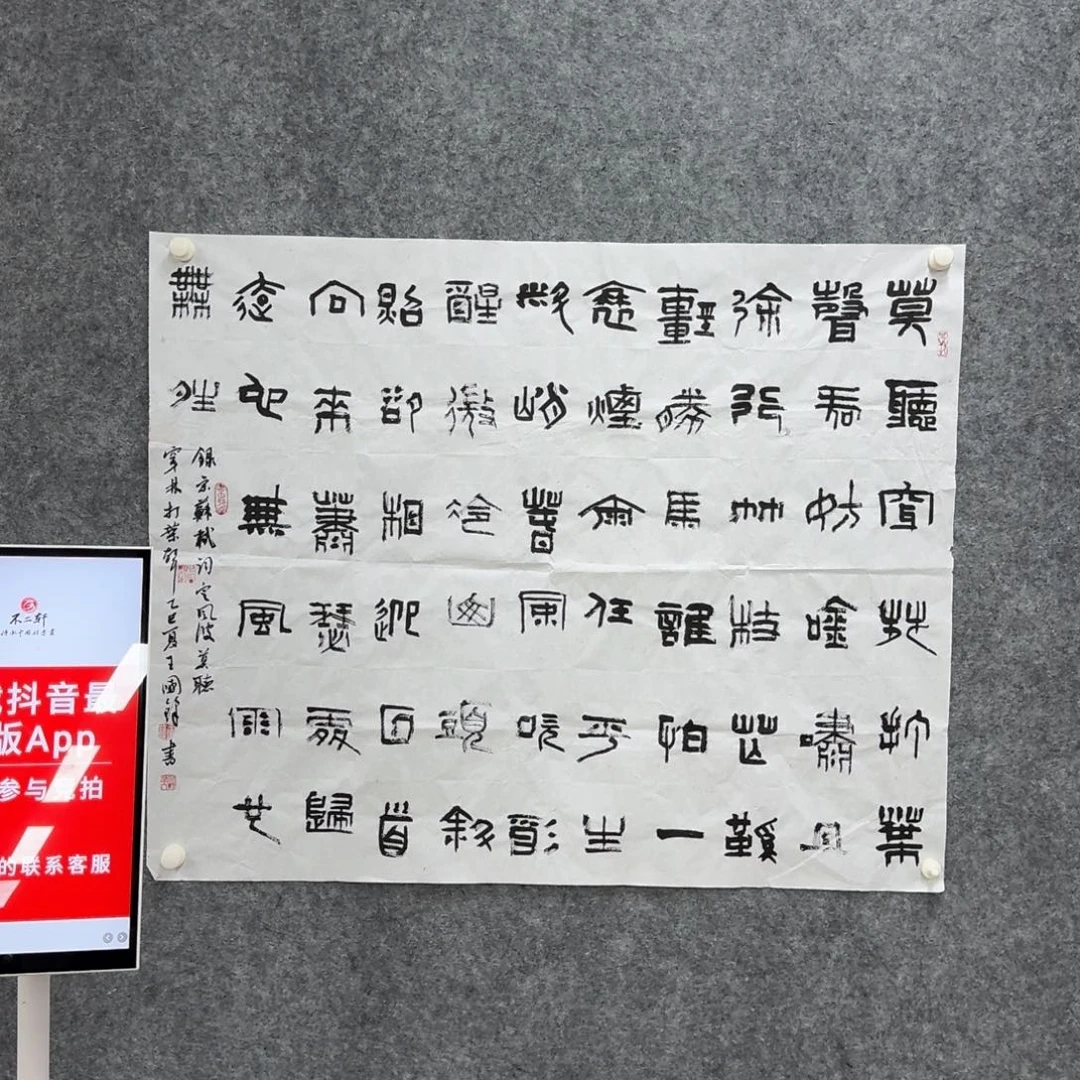 莫聽穿林打葉
聲何妨吟嘯且
徐行竹杖芒鞋
輕勝馬誰怕一
蓑煙雨任平生
料峭春風吹酒
醒微冷山頭斜
照卻相迎回首
向來蕭瑟處歸
去也無風雨也
無晴
錄宋蘇軾詞定風波莫聽
穿林打葉聲乙巳夏王國鋒書
不二轩
抖音最
版App
参与竞拍
的联系客服